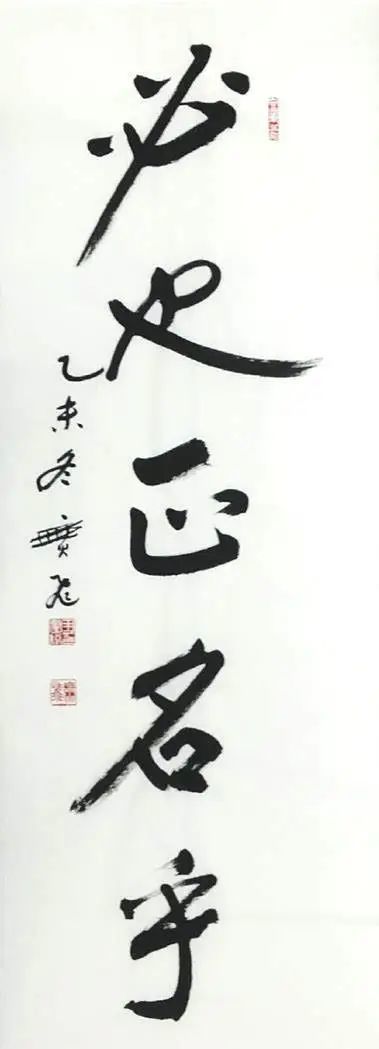 必也正名乎
乙未冬